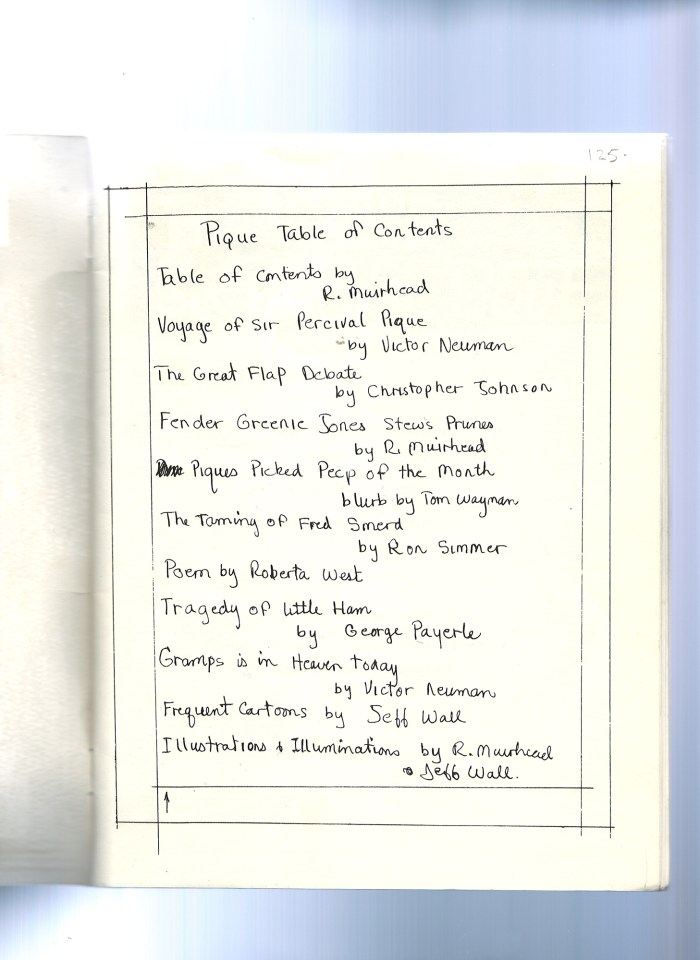 125.
Pique Table of Contents
Table of Contents by
R. Muirhead
Voyage of Sir Percival Pique
by Victor Neuman
The Great Flap Debate
by Christopher Johnson
Fender Greenie Jones Stews Prunes
by R. Muirhead
Piques Picked Peep of the Month
blurb by Tom Wayman
The Taming of Fred Smerd
by Ron Simmer
Poem by Roberta West
Tragedy of Little Ham
by George Payerle
Gramps is in Heaven Today
by Victor Neuman
Frequent Cartoons by Jeff Wall
Illustrations & Illuminations by R. Muirhead
& Jeff Wall.